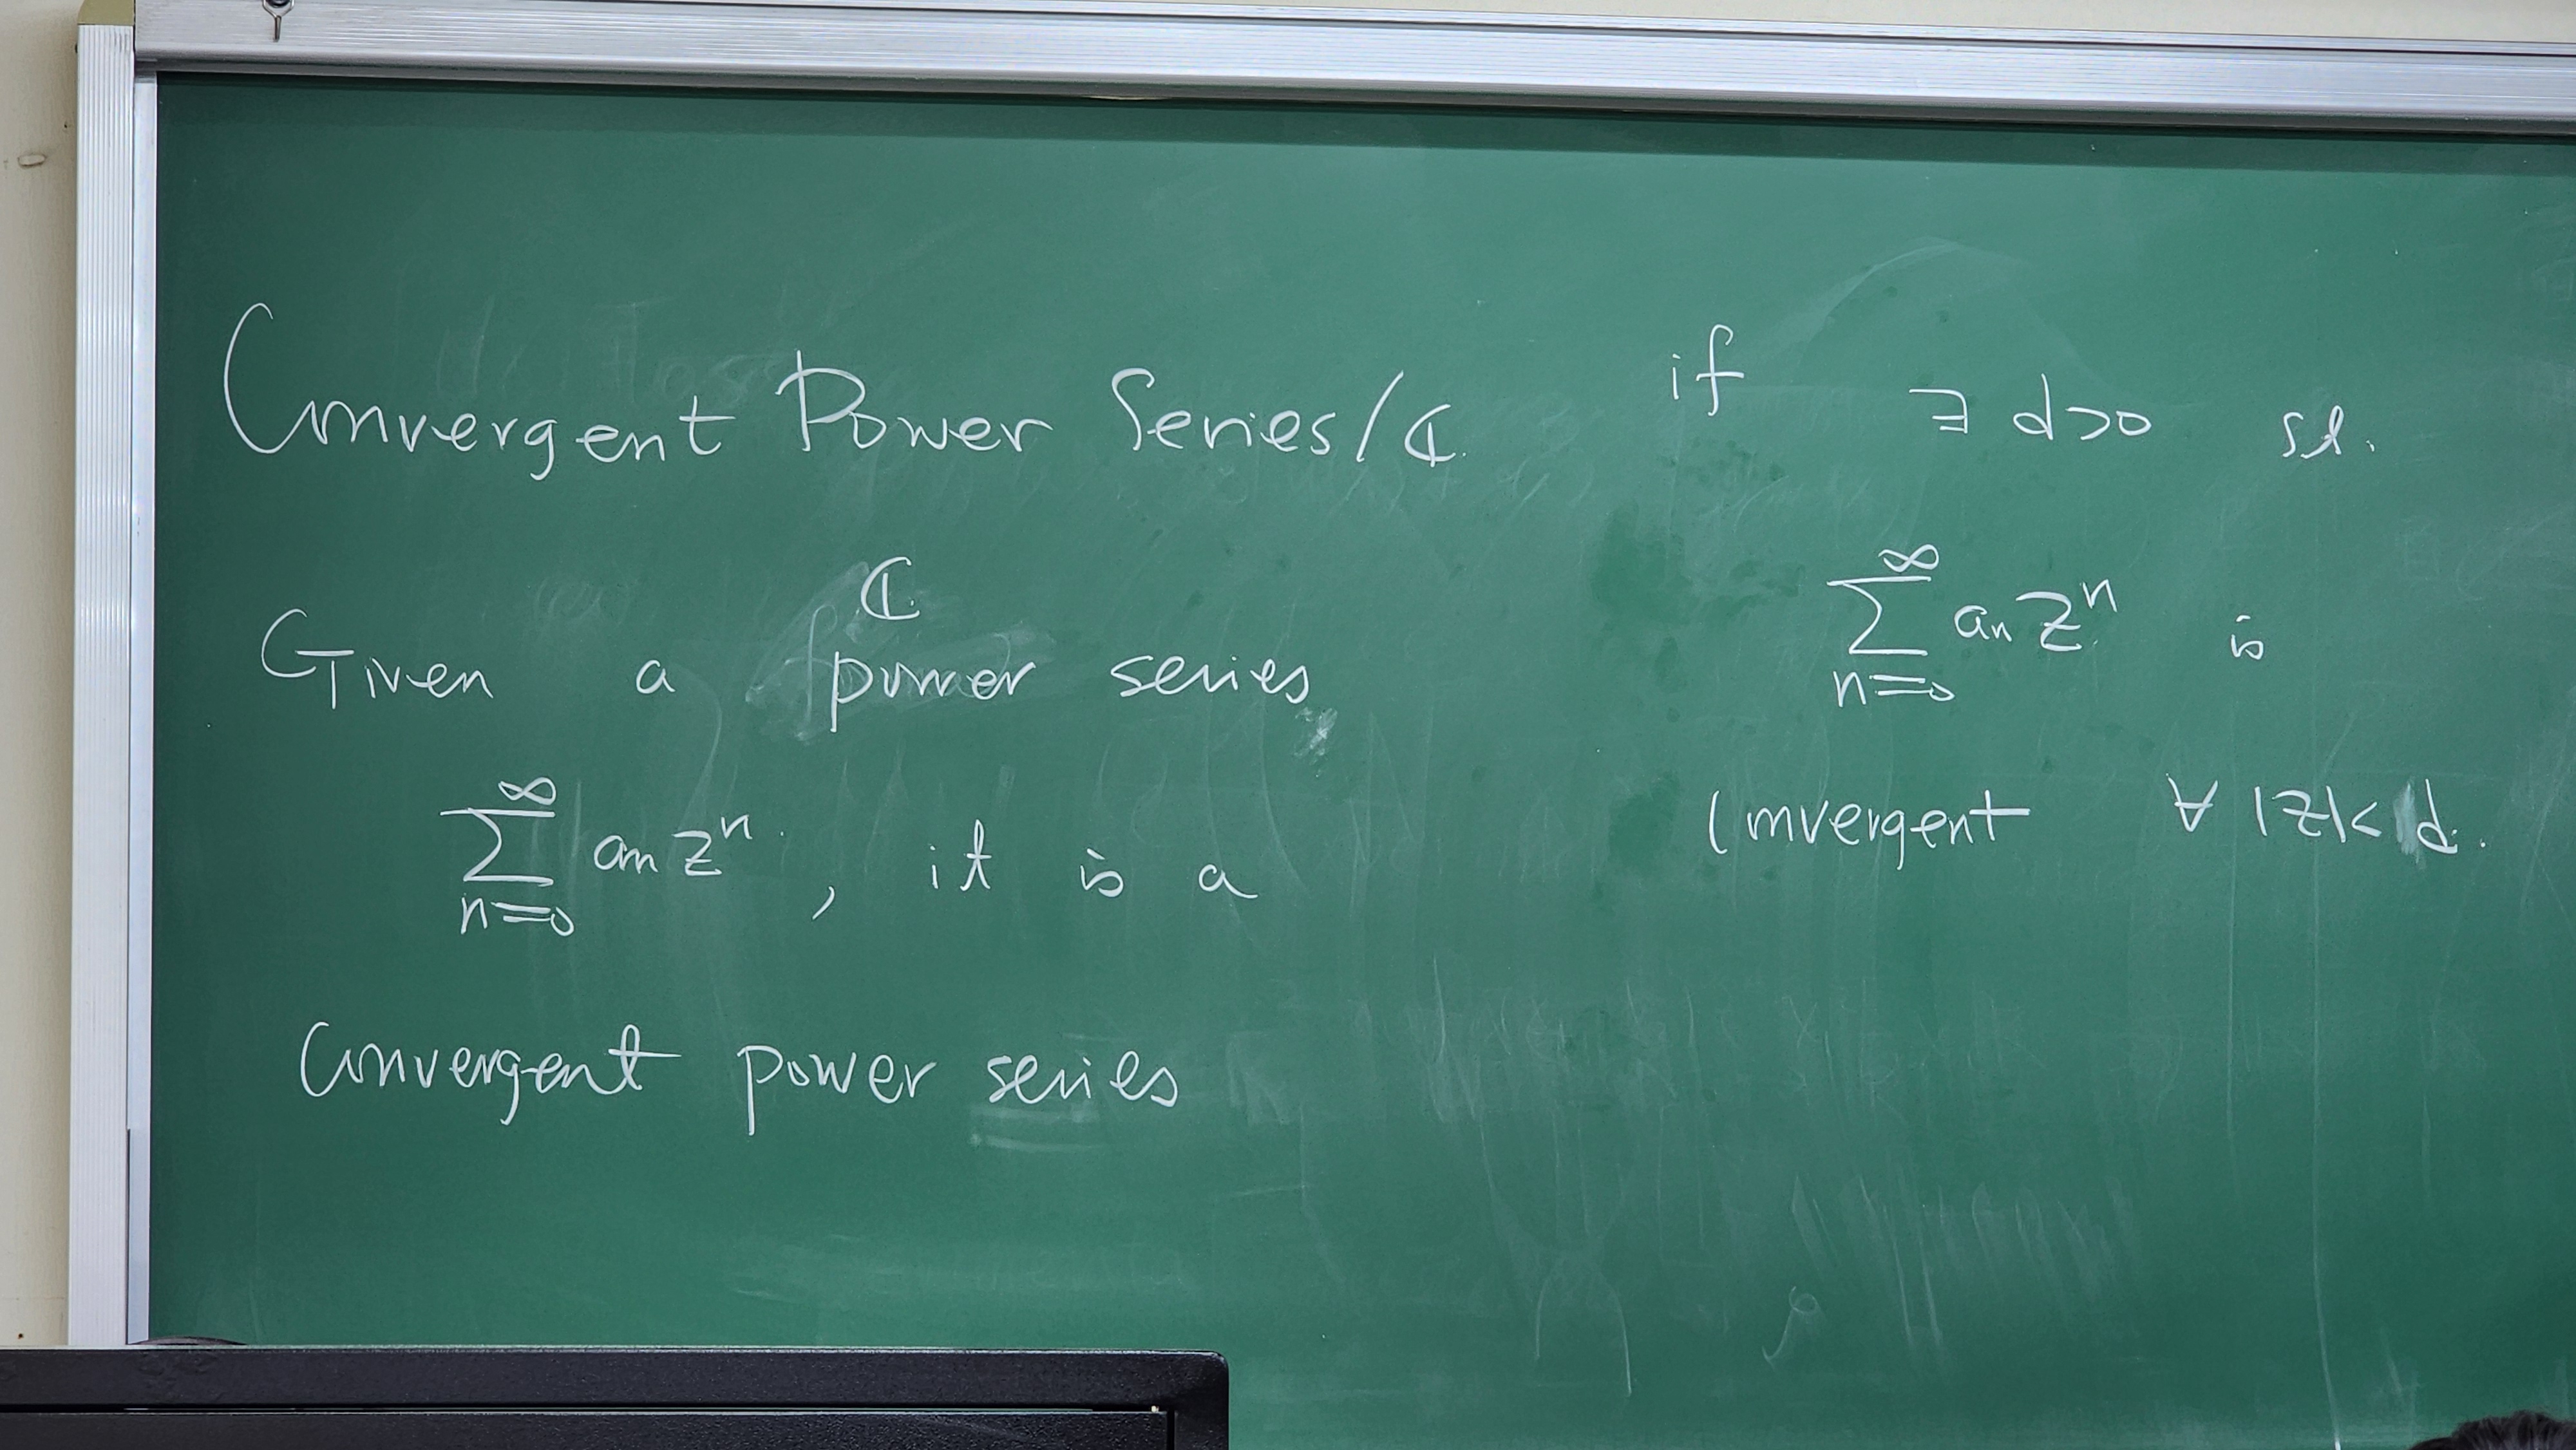 Convergent Power Series/ℂ
ℂ
Given a power series
∞
∑ aₙ zⁿ, it is a
n=0
Convergent power series
if ∃ d>0 st.
∞
∑ aₙ zⁿ is
n=0
Convergent ∀ |z|< d.